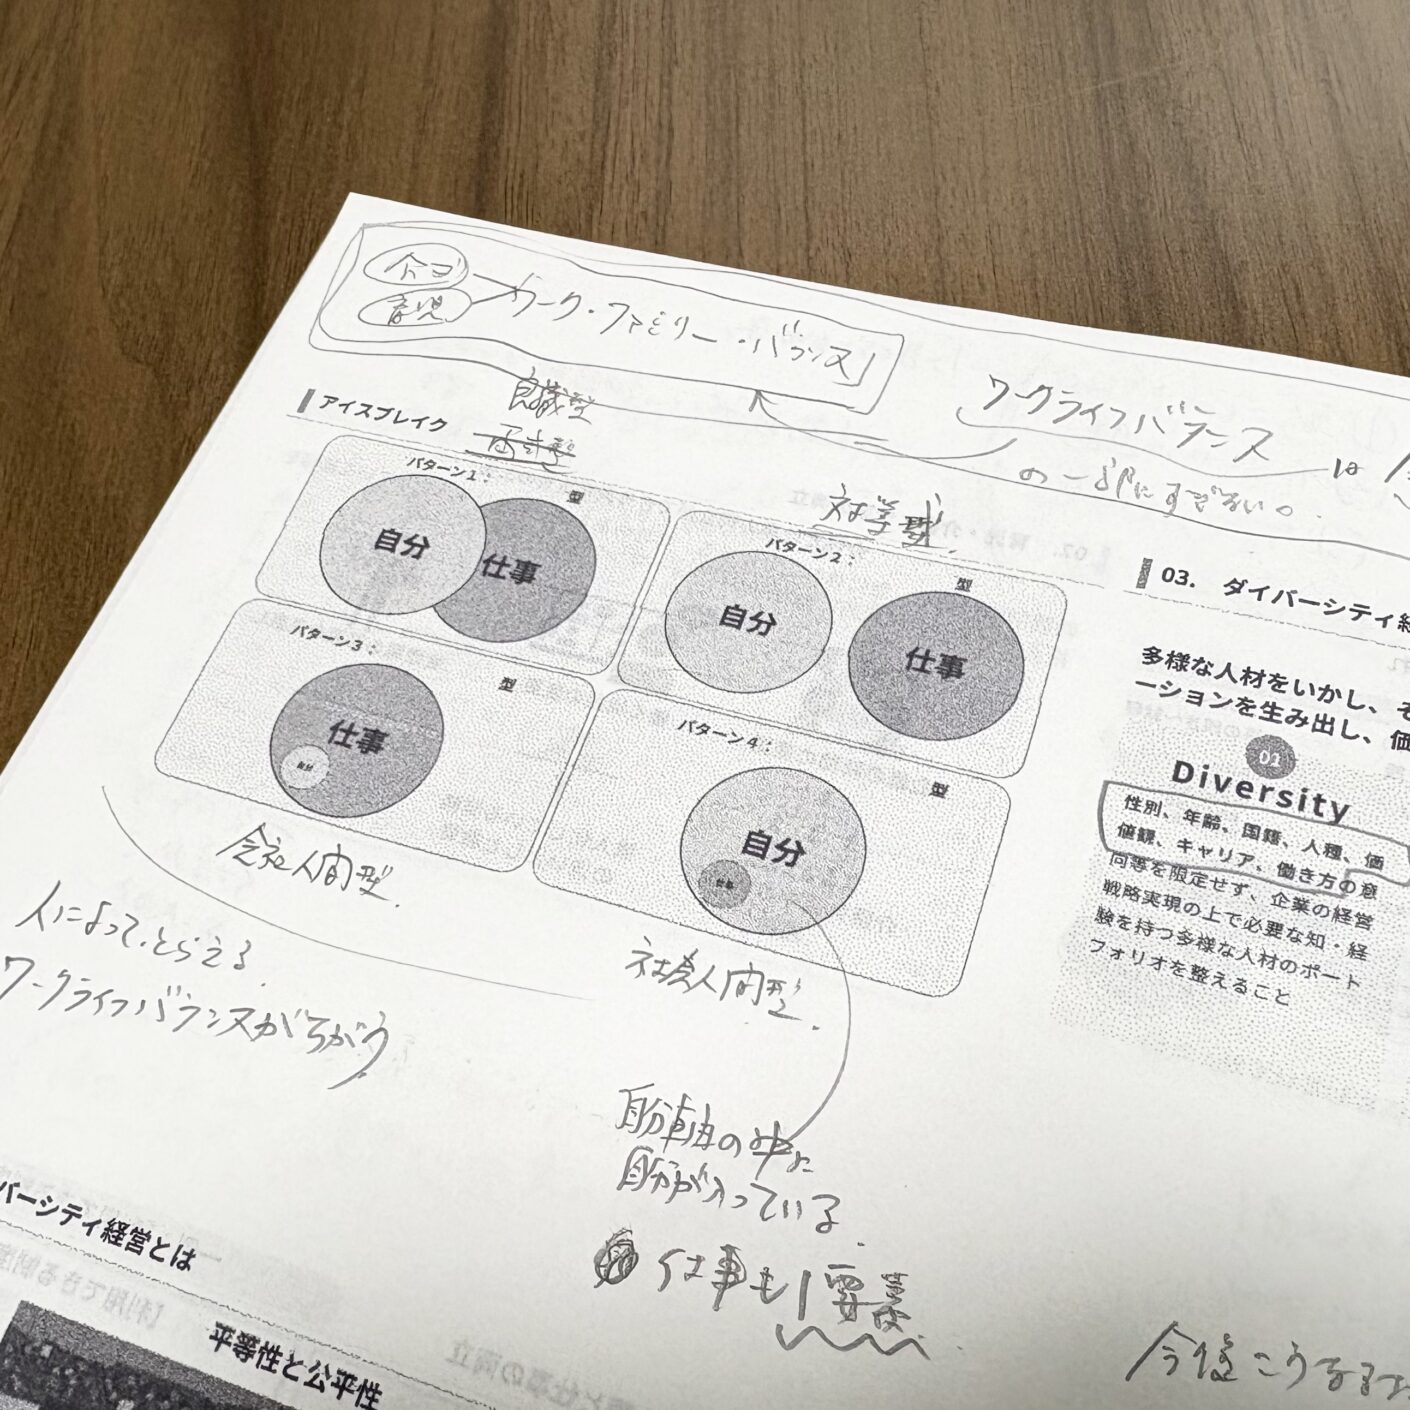 介護
育児
ワーク・ファミリー・バランス
ワークライフバランス
は
の一部にすぎない。
アイスブレイク
パターン1：
型
自分
仕事
パターン2：
型
自分
仕事
パターン3：
型
仕事
自分
パターン4：
型
自分
仕事
会社人間型.
社会人間型.
人によって、とらえる
ワークライフバランスがちがう
自分の中に
自分が入っている.
仕事も1要素.
03. ダイバーシティ経
多様な人材をいかし、そ
ーションを生み出し、価
01
Diversity
性別、年齢、国籍、人種、価
値観、キャリア、働き方の意
同等を限定せず、企業の経営
戦略実現の上で必要な知・経
験を持つ多様な人材のポート
フォリオを整えること
バーシティ経営とは
平等性と公平性
今後こうなる